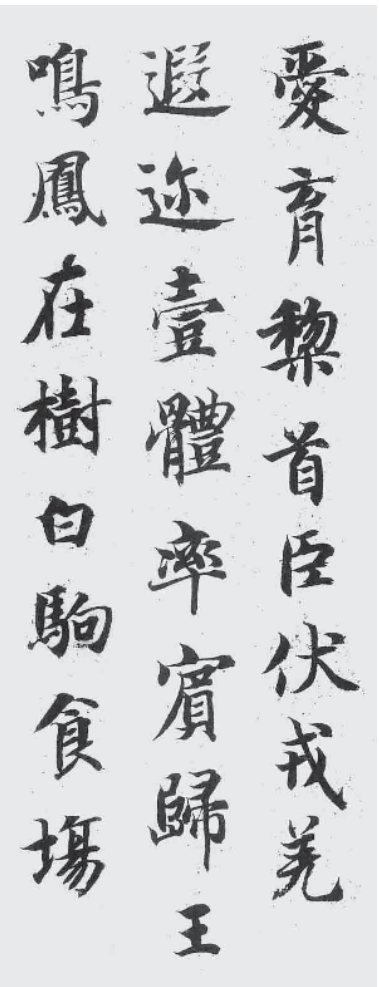 愛育黎首臣伏戎羌
遐迩壹體率賓歸王
鳴鳳在樹白駒食場